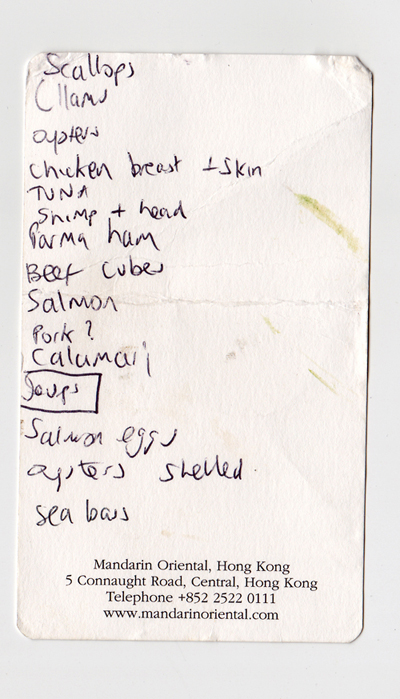 Scallops
Cllams
oysters
chicken breast + skin
TUNA
Shimp + head
Parma ham
Beef cubes
Salmon
Pork ?
Calamari
Soups
Salmon eggs
oysters shelled.
sea bass
Mandarin Oriental, Hong Kong
5 Connaught Road, Central, Hong Kong
Telephone +852 2522 0111
www.mandarinoriental.com